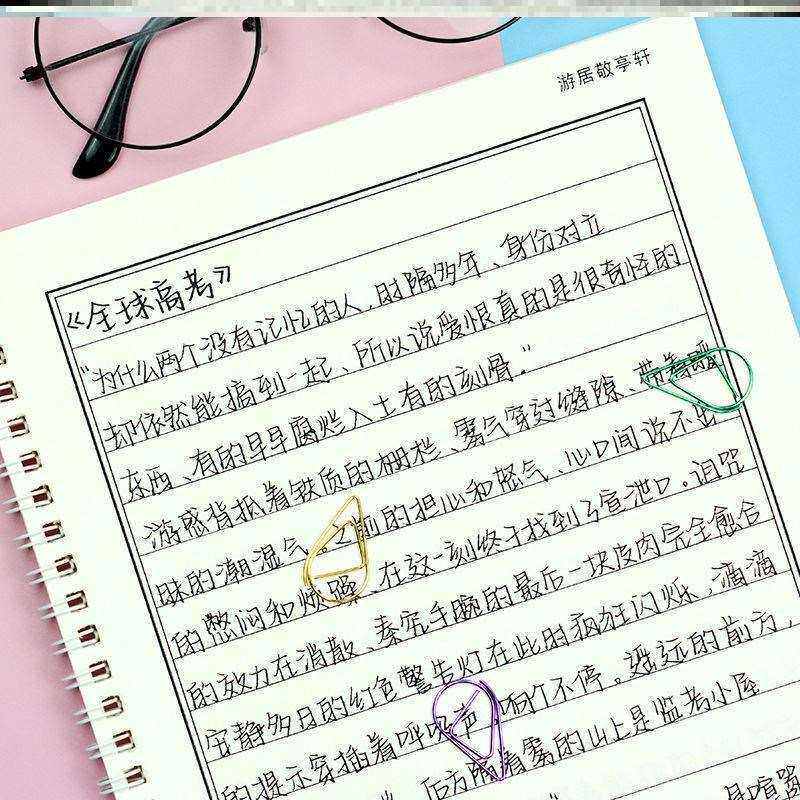 游居敬亭轩
《全球高考》
"为什么两个没有记忆的人、时隔多年、身份对立
却依然能搞到一起、所以说爱恨真的是很奇怪的
东西、有的早早腐烂入土有的刻骨。"
游惑背抵着铁质的栅栏、雾气穿过缝隙、带着暧
昧的潮湿气。之前的担心和怒气、心口间说不出
的憋闷和烦躁、在这一刻终于找到了宣泄口。诅咒
的效力在消散、秦究手腕的最后一块皮肉完全愈合
安静多日的红色警告灯在此时疯狂闪烁，滴滴
的提示穿插着呼吸声 响个不停。遥远的前方，
后方隔着雾的山上是监考小屋
是喧嚣